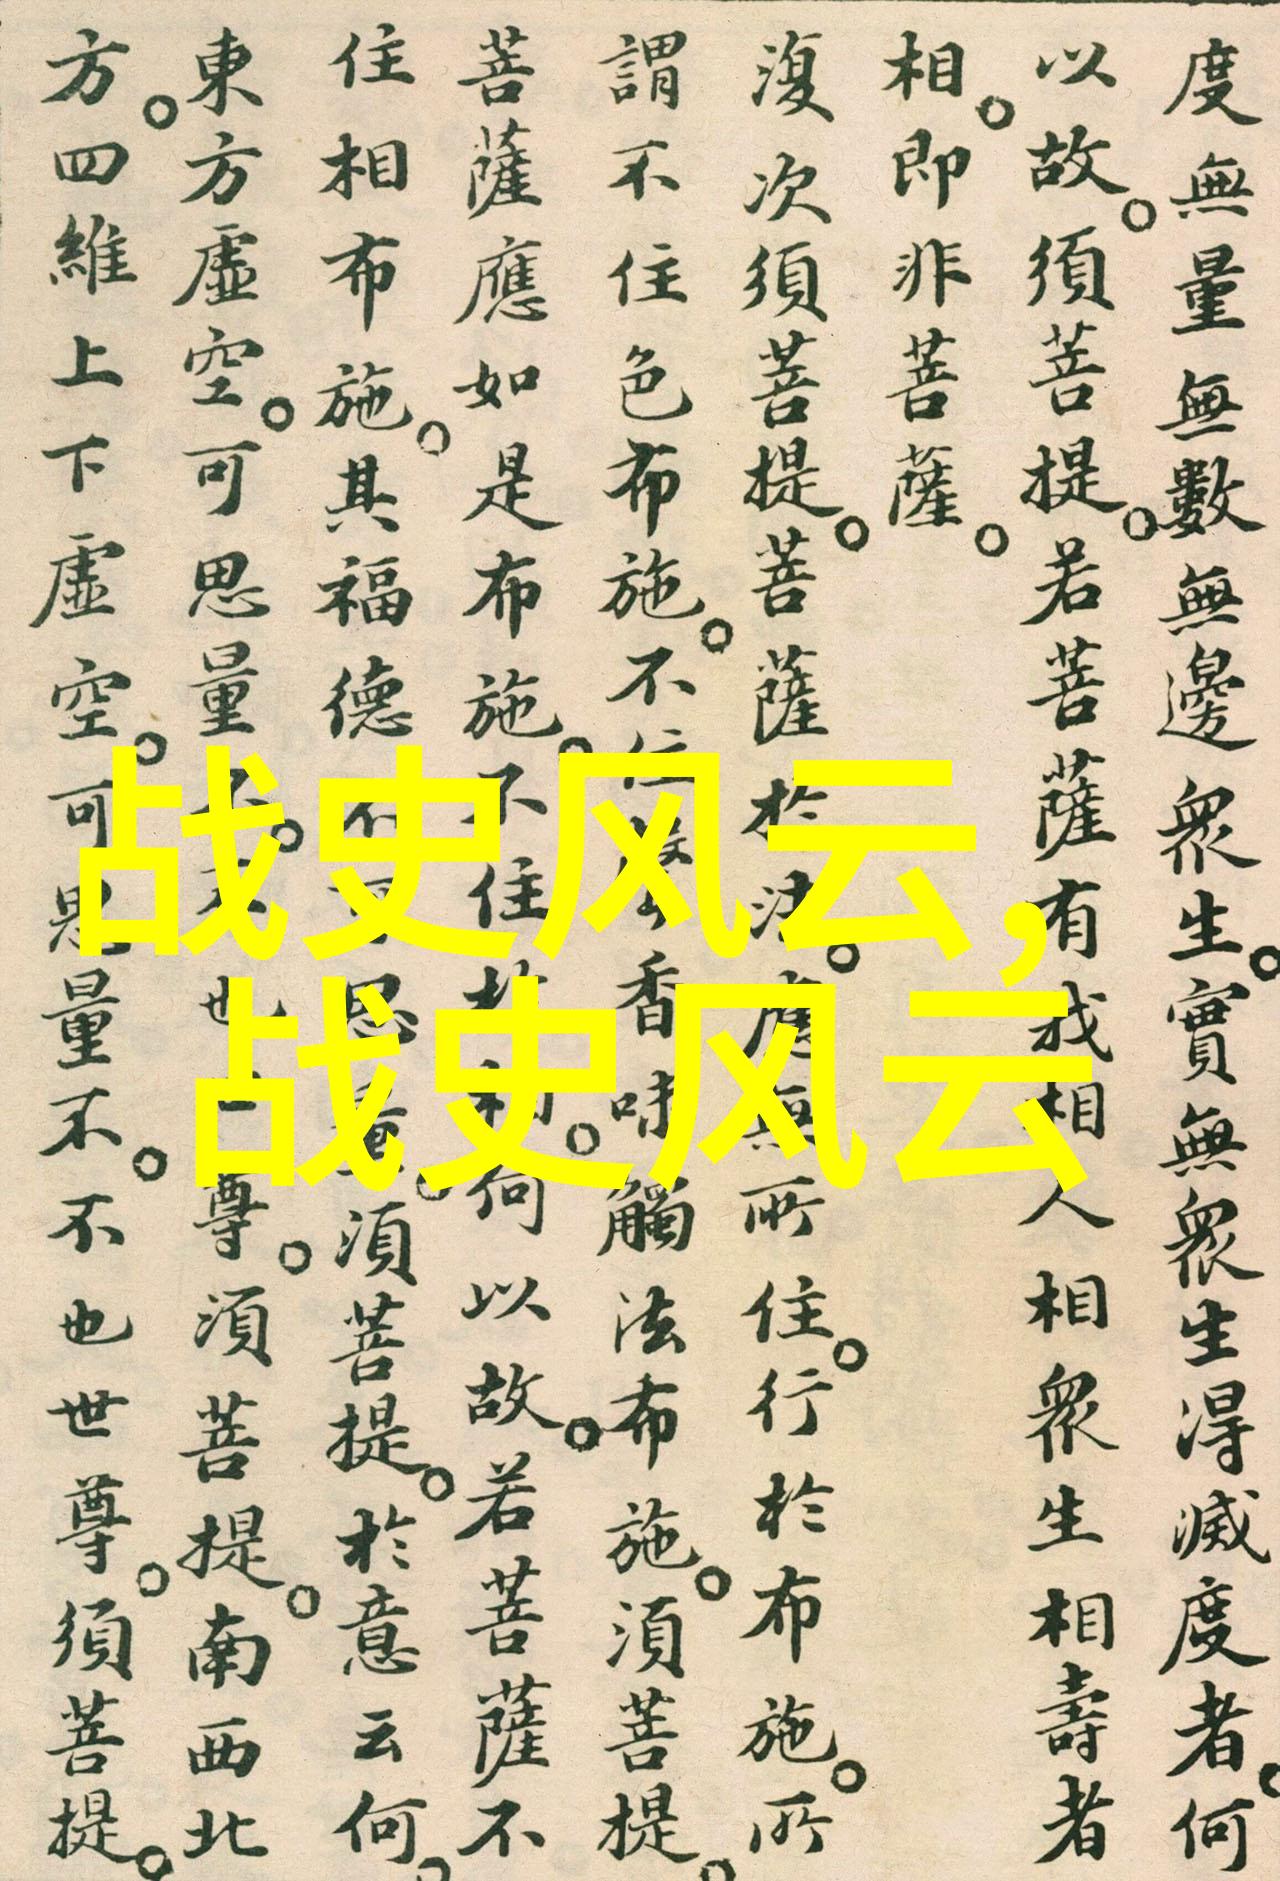 度無量無數無邊衆生。實無衆生得滅度者。何
以故。須菩提。若菩薩有我相人相衆生相壽者
相。即非菩薩。
復次須菩提。菩薩於法。應無所住。行於布施。所
謂不住色布施。不住聲香味觸法布施。須菩提。
菩薩應如是布施。不住於相。何以故。若菩薩不
住相布施。其福德不可思量。須菩提。於意云何。
東方虛空。可思量不。不也世尊。須菩提。南西北
方。四維上下虛空。可思量不。不也世尊。須菩提。
战史风云,
战史风云